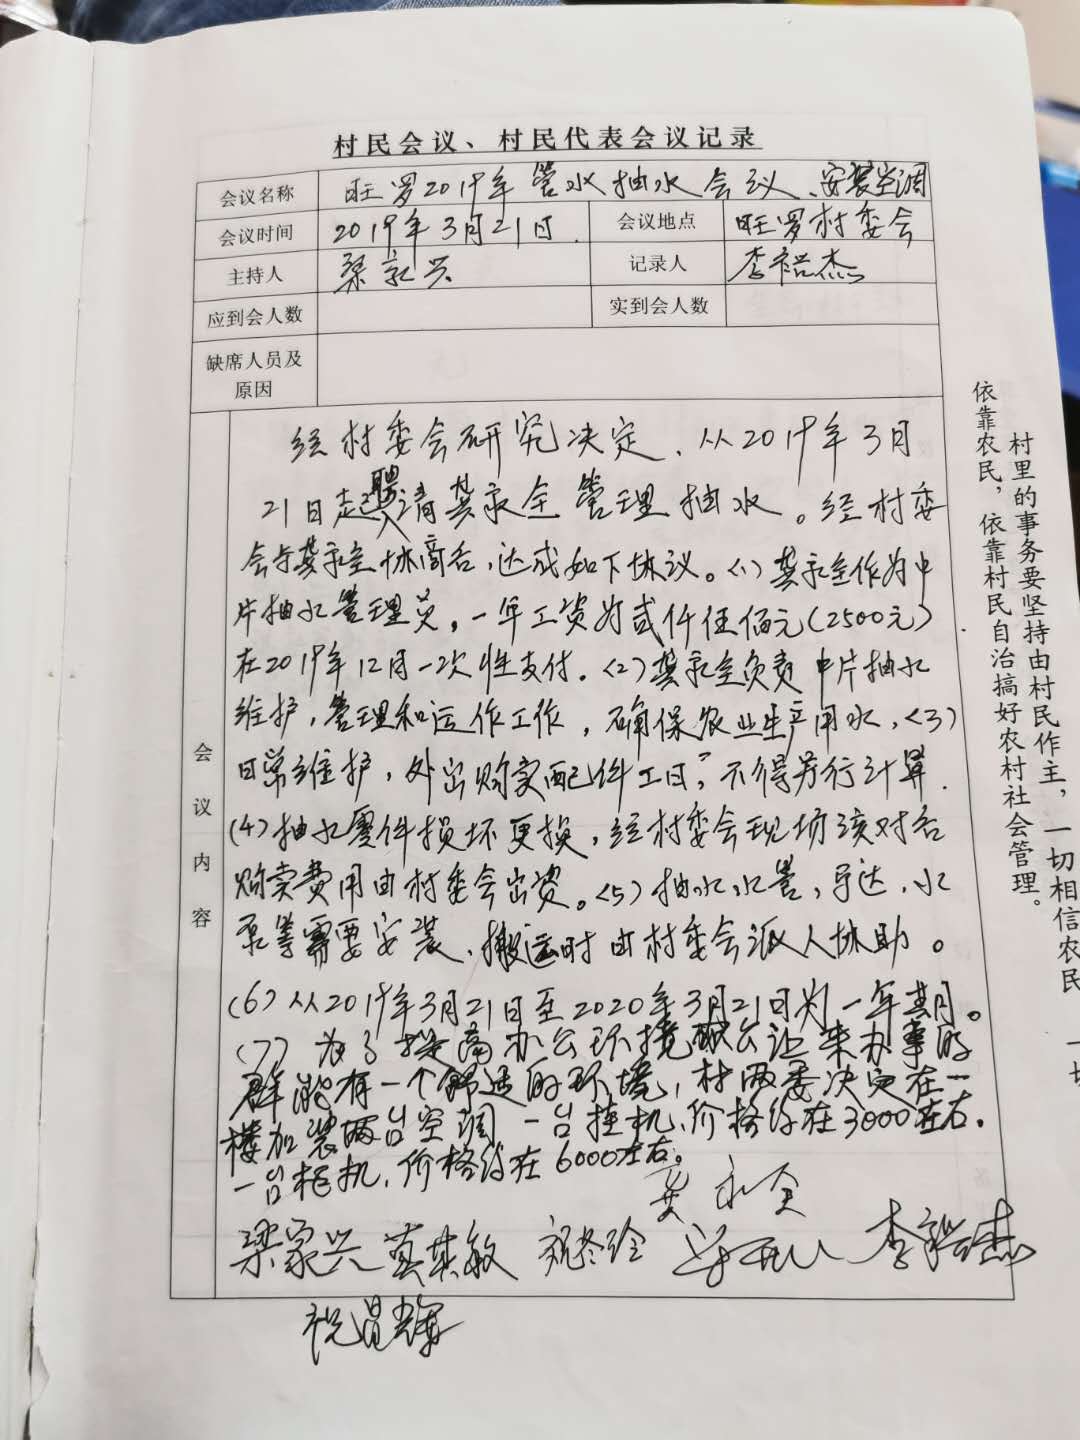 村民会议、村民代表会议记录
会议名称 旺罗2019年管水抽水会议、安装空调
会议时间 2019年3月21日. 会议地点 旺罗村委会
主持人 梁家兴 记录人 李裕杰
应到会人数 实到会人数
缺席人员及
原因
会议内容
经村委会研究决定、从2019年3月
21日起聘请龚永全管理抽水。经村委
会与龚永全协商后,达成如下协议。<1>龚永全作为中
片抽水管理员。一年工资为贰仟伍佰元(2500元)
在2019年12月一次性支付。<2>龚永全负责中片抽水
维护,管理和运作工作,确保农业生产用水,<3>
日常维护,外出购买配件工日,不得另行计算.
(4)抽水零件损坏更换,经村委会现场核对后
购卖费用由村委会出资。<5>抽水水管,马达,水
泵等需要安装、搬运时由村委会派人协助。
(6)从2019年3月21日至2020年3月21日为一年期。
(7)为了提高办公环境 让来办事的
群众能有一个舒适的环境,村两委决定在一
楼加装两台空调 一台挂机、价格约在3000左右.
一台柜机,价格约在6000左右。
龚永全
梁家兴 李裕杰
祝昌辉
村里的事务要坚持由村民作主,一切相信农民
依靠农民,依靠村民自治搞好农村社会管理。